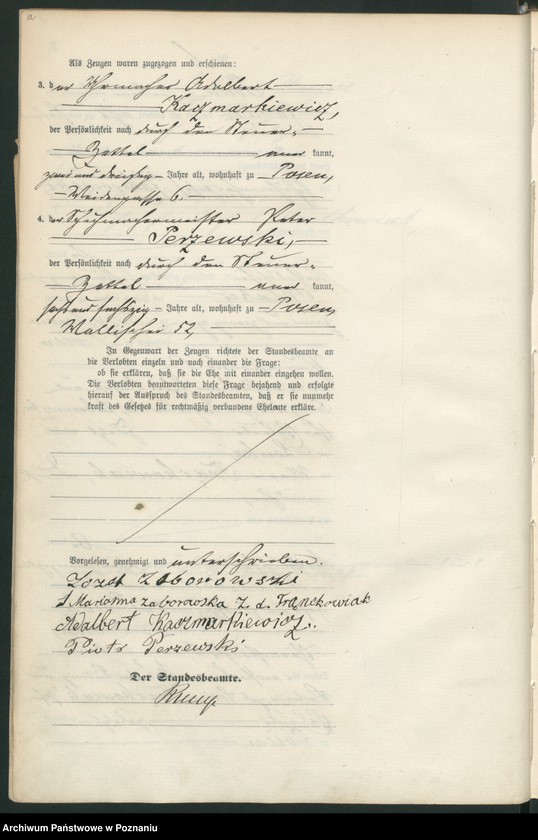 Als Zeugen waren zugezogen und erschienen:
3. der Uhrmacher Adalbert
Kaczmarkiewicz,
der Persönlichkeit nach durch den Steuer-
Zettel aner kannt,
zweiunddreißig Jahre alt, wohnhaft zu Posen,
Weidengasse 6.
4. der Schuhmachermeister Peter
Perzewski,
der Persönlichkeit nach durch den Steuer-
Zettel aner kannt,
sechszig Jahre alt, wohnhaft zu Posen,
Wallischei 52,
In Gegenwart der Zeugen richtete der Standesbeamte an
die Verlobten einzeln und nach einander die Frage:
ob sie erklären, daß sie die Ehe mit einander eingehen wollen.
Die Verlobten beantworteten diese Frage bejahend und erfolgte
hierauf der Ausspruch des Standesbeamten, daß er sie nunmehr
kraft des Gesetzes für rechtmäßig verbundene Eheleute erkläre.
Vorgelesen, genehmigt und unterschrieben.
Zaborowski
Marianna Zaborowska z. d. Franckowiak
Adalbert Kaczmarkiewicz.
Piotr Perzewski
Der Standesbeamte.
Archiwum Państwowe w Poznaniu